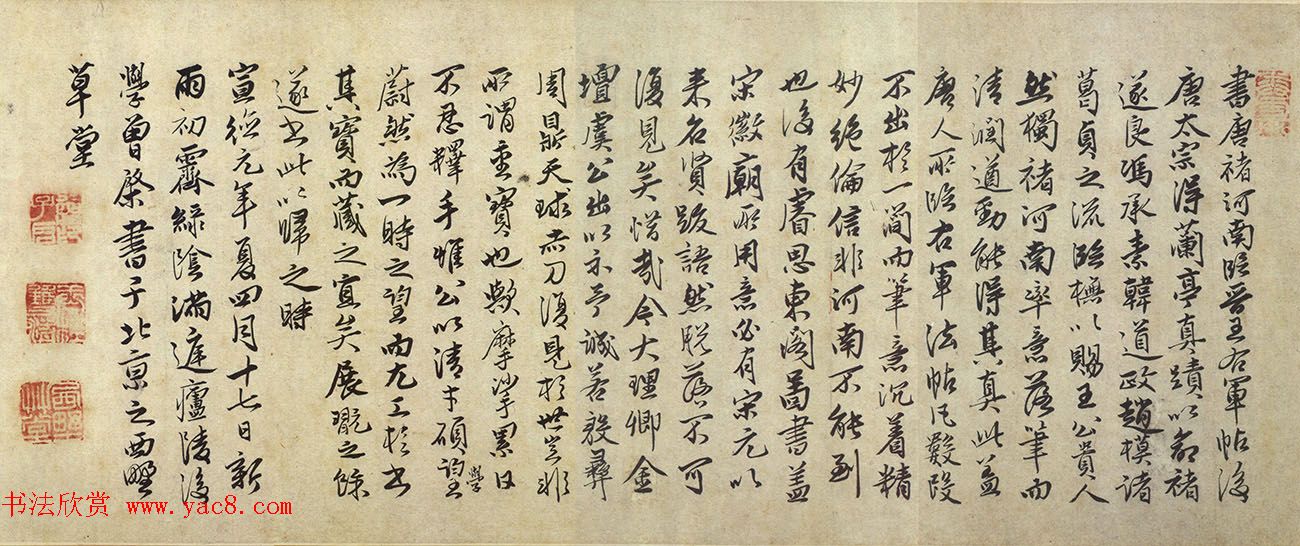 書唐褚河南臨晉王右軍帖後
唐太宗得蘭亭真蹟以命褚
遂良馮承素韓道政趙模諸
葛貞之流臨橅以賜王公貴人
然獨褚河南率意落筆而
清潤遒勁能得其真此蓋
唐人所臨右軍法帖凡數段
不出於一簡而筆意沉着精
妙絕倫信非河南不能到
也後有睿思東閣圖書蓋
宋徽廟所用意必有宋元以
來名賢跋語然脫落不可
復見矣惜哉今大理卿金
壇虞公出以示予誠若殷彝
周鼎天球赤刀復見於世豈非
所謂重寶也歟摩挲累日
不忍釋手惟公以清才碩學望
蔚然為一時之望而尤工於書
其寶而藏之宜矣展翫之餘
遂書此以歸之時
宣德元年夏四月十七日新
雨初霽綠陰滿庭廬陵後
學曾棨書于北京之西墅
草堂
书法欣赏 www.yac8.com